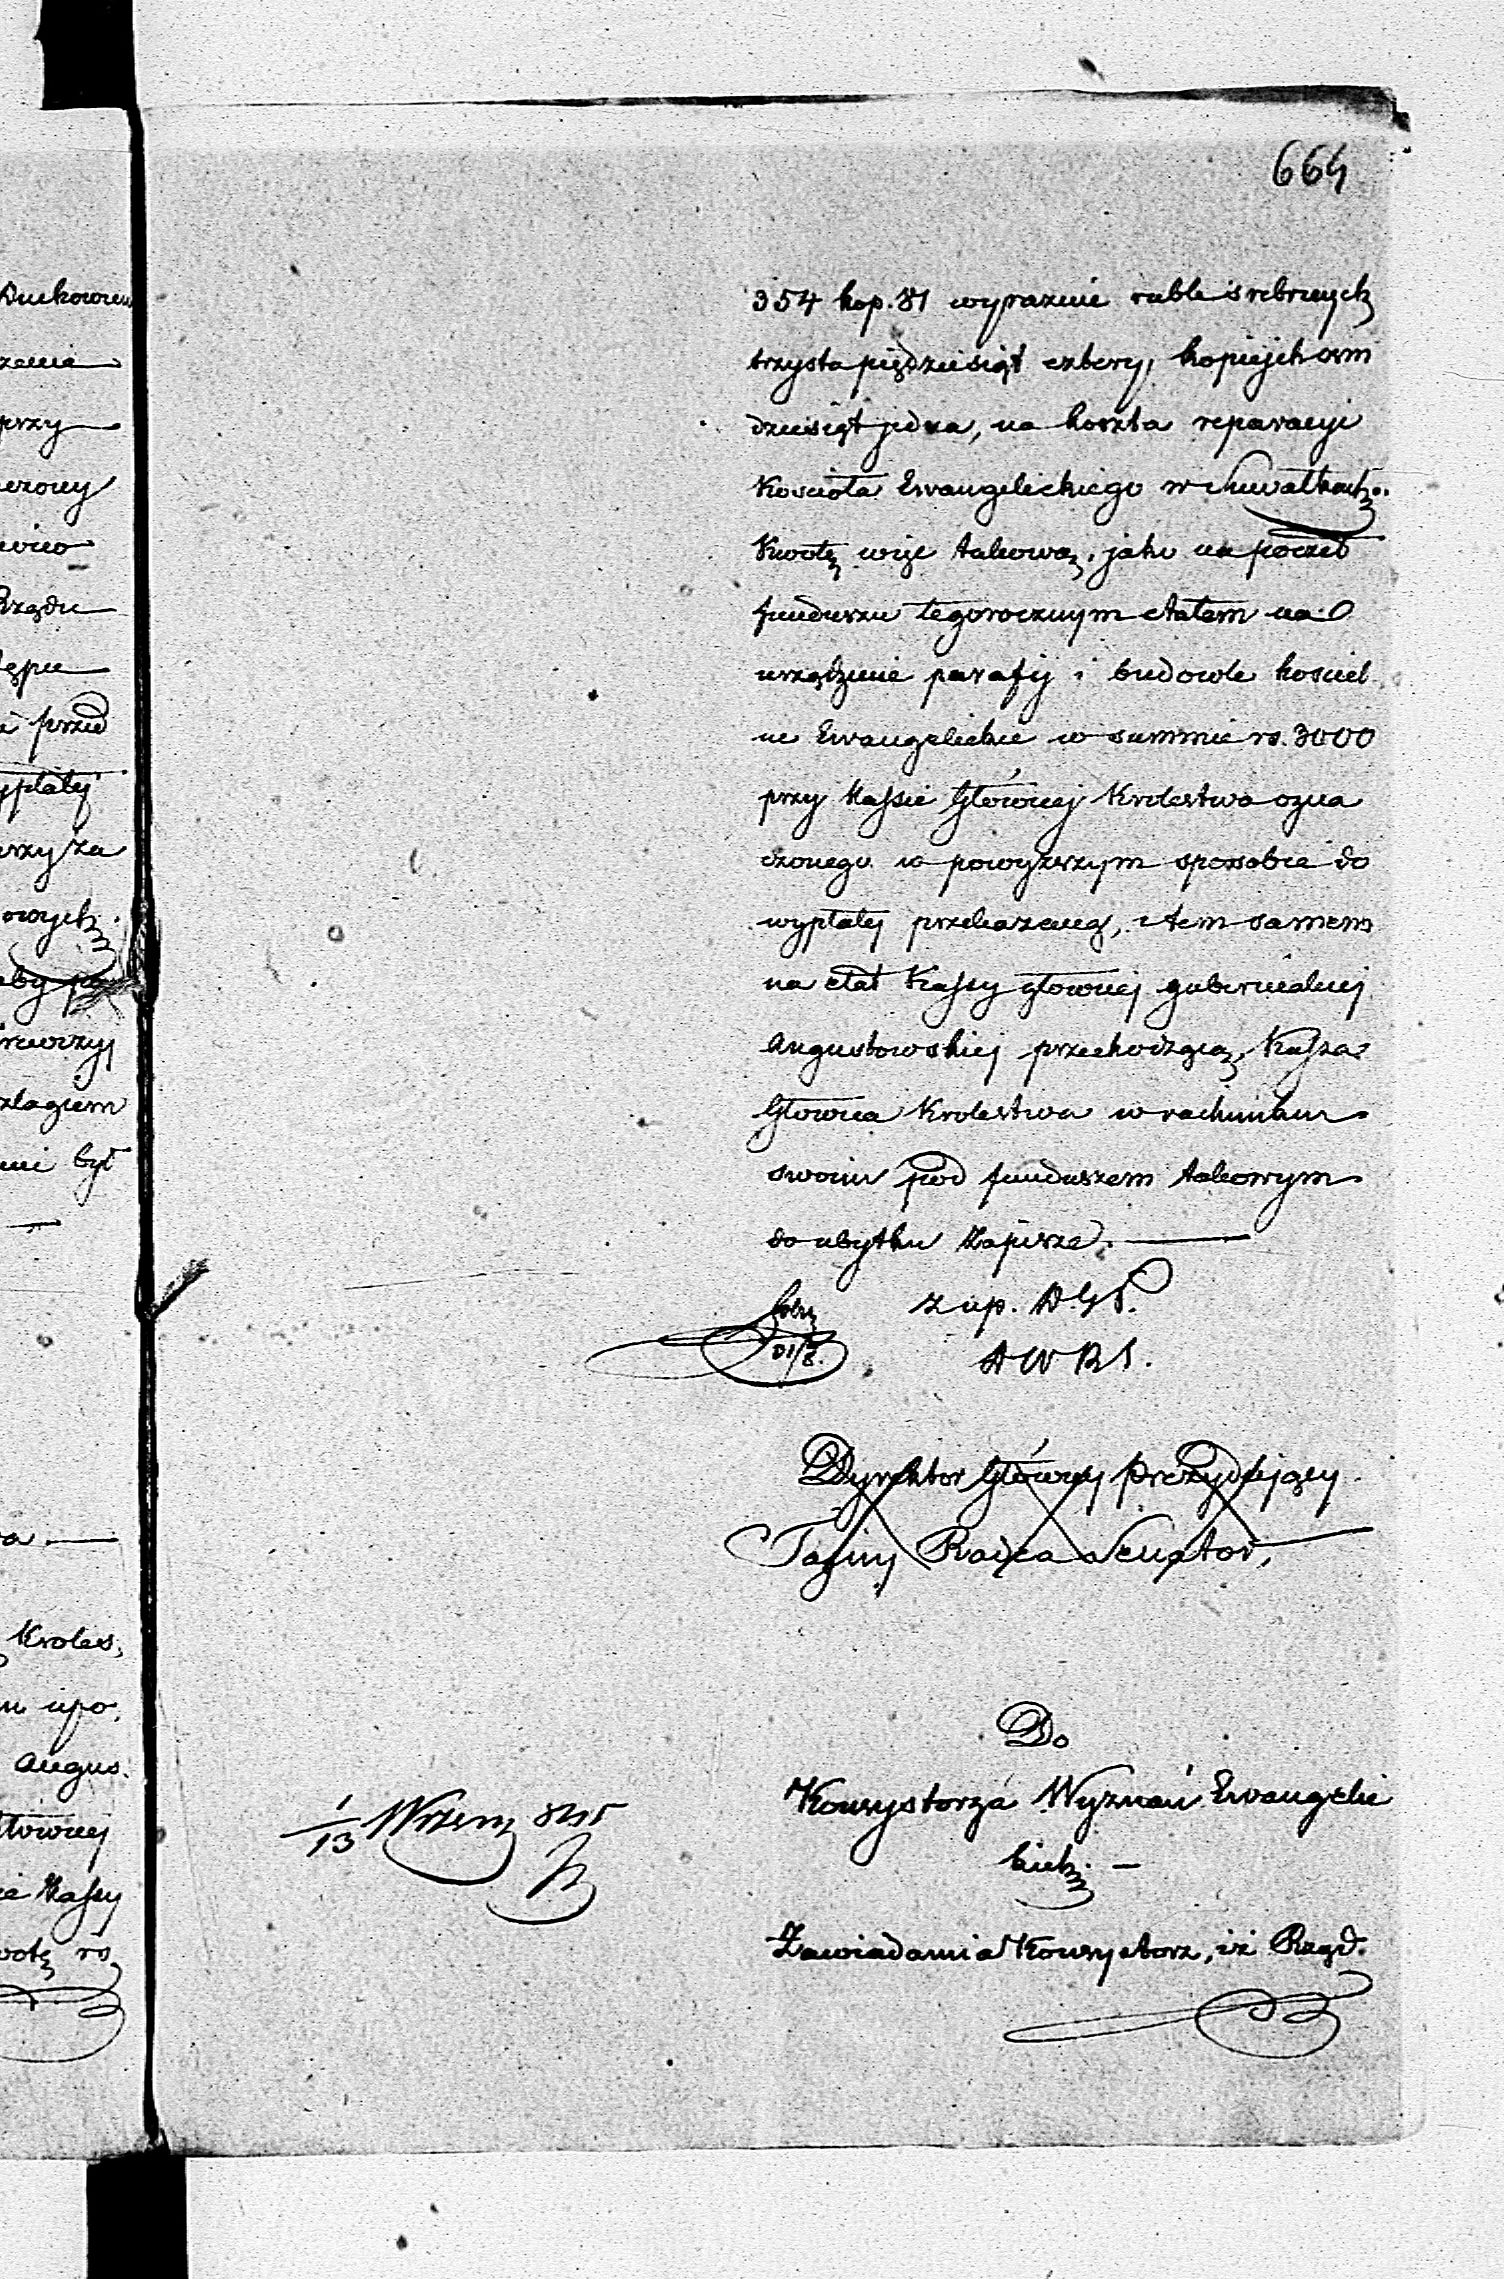 664
354 kop. 81 wyraznie ruble srebrnych
trzysta pięździesiąt cztery, kopiejek osm
dziesiąt jedna, na koszta reparacyi
Kościoła Ewangelickiego w Suwałkach.
Kwotę więc takową, jako na poczet
funduszu tegorocznym etatem na
urządzenie parafij i budowle kosciel
ne Ewangelickie w summie rs. 3000
przy Kassie Głównej Krolestwa ozna
czonego w powyższym sposobie do
wypłaty przekazaną, a tem samem
na etat Kassy głownej gubernialnej
Augustowskiej przechodzącą, Kassa
Głowna Krolestwa w rachunku
swoim pod funduszem takowym
do ubytku zapisze. —
z up. D.G.P.
D W R S.
Dyrektor Główny Prezydujący
Tajny Radca Senator,
Do
Konsystorza Wyznań Ewangelic
kich. —
1/13 Wrzesn 845
Zawiadamia Konsystorz, iż Rząd.
Duchown
zenie
przy
Rządu
przed
wypłaty
za
owych.
aby po
był
Kroles,
upo,
Augus.
Głównej
Kassy
kwotę rs